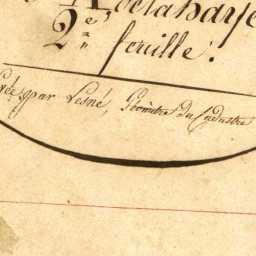 delahaye
2.e feuille.
par Lesné, Géomètre du Cadastre